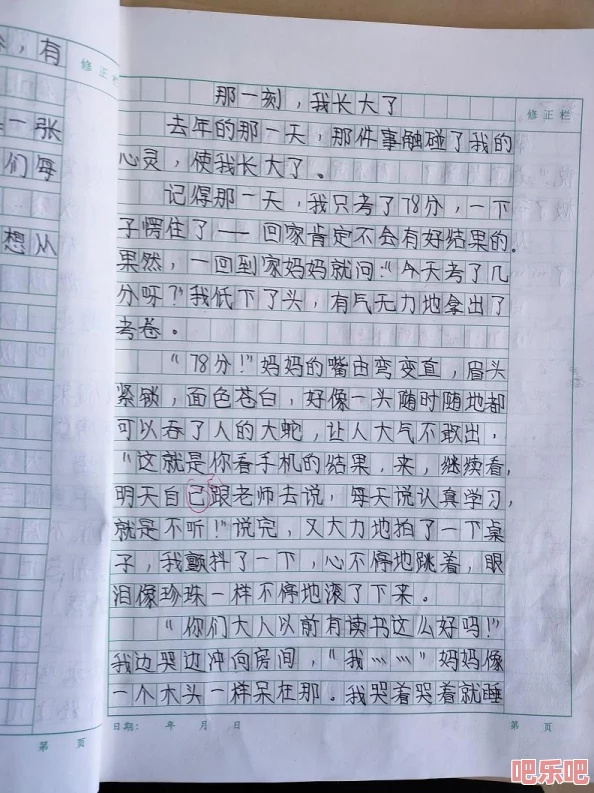 ，有
修正栏
一张
们每
想从
第 页
修正栏
那一刻，我长大了
去年的那一天，那件事触碰了我的
心灵，使我长大了。
记得那一天，我只考了78分，一下
子愣住了——回家肯定不会有好结果的。
果然，一回到家妈妈就问：“今天考了几
分呀？”我低下了头，有气无力地拿出了
考卷。
“78分！”妈妈的嘴由弯变直，眉头
紧锁，面色苍白，好像一头随时随地都
可以吞了人的大蛇，让人大气不敢出，
“这就是你看手机的结果，来，继续看，
明天自己跟老师去说，每天说认真学习，
就是不听！”说完，又大力地拍了一下桌
子，我颤抖了一下，心不停地跳着，眼
泪像珍珠一样不停地滚了下来。
“你们大人以前有读书这么好吗！”
我边哭边冲向房间，“我……”妈妈像
一个木头一样呆在那。我哭着哭着就睡
日期： 年 月 日
第 页
吧乐吧